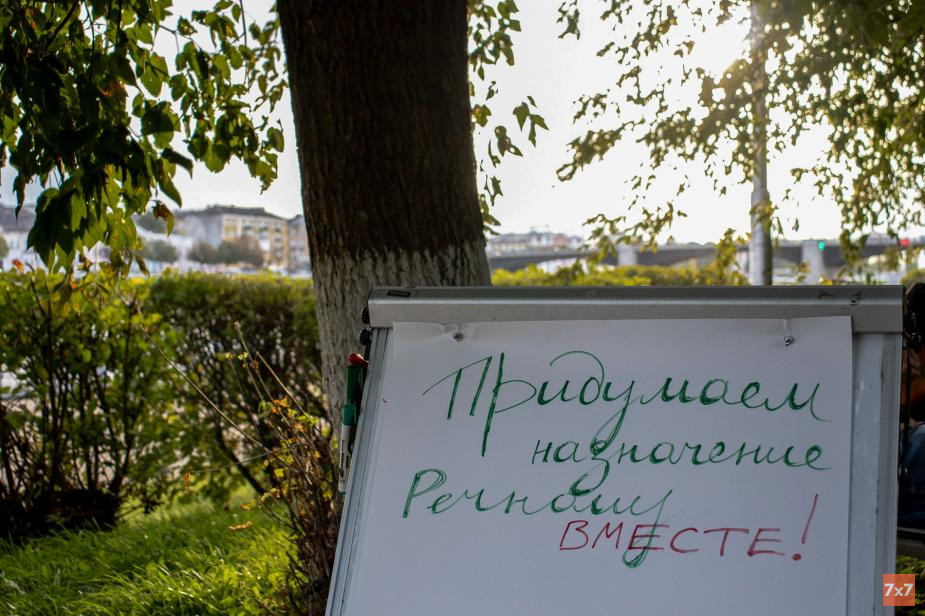 Придумаем
назначение
Речному
ВМЕСТЕ!
7x7